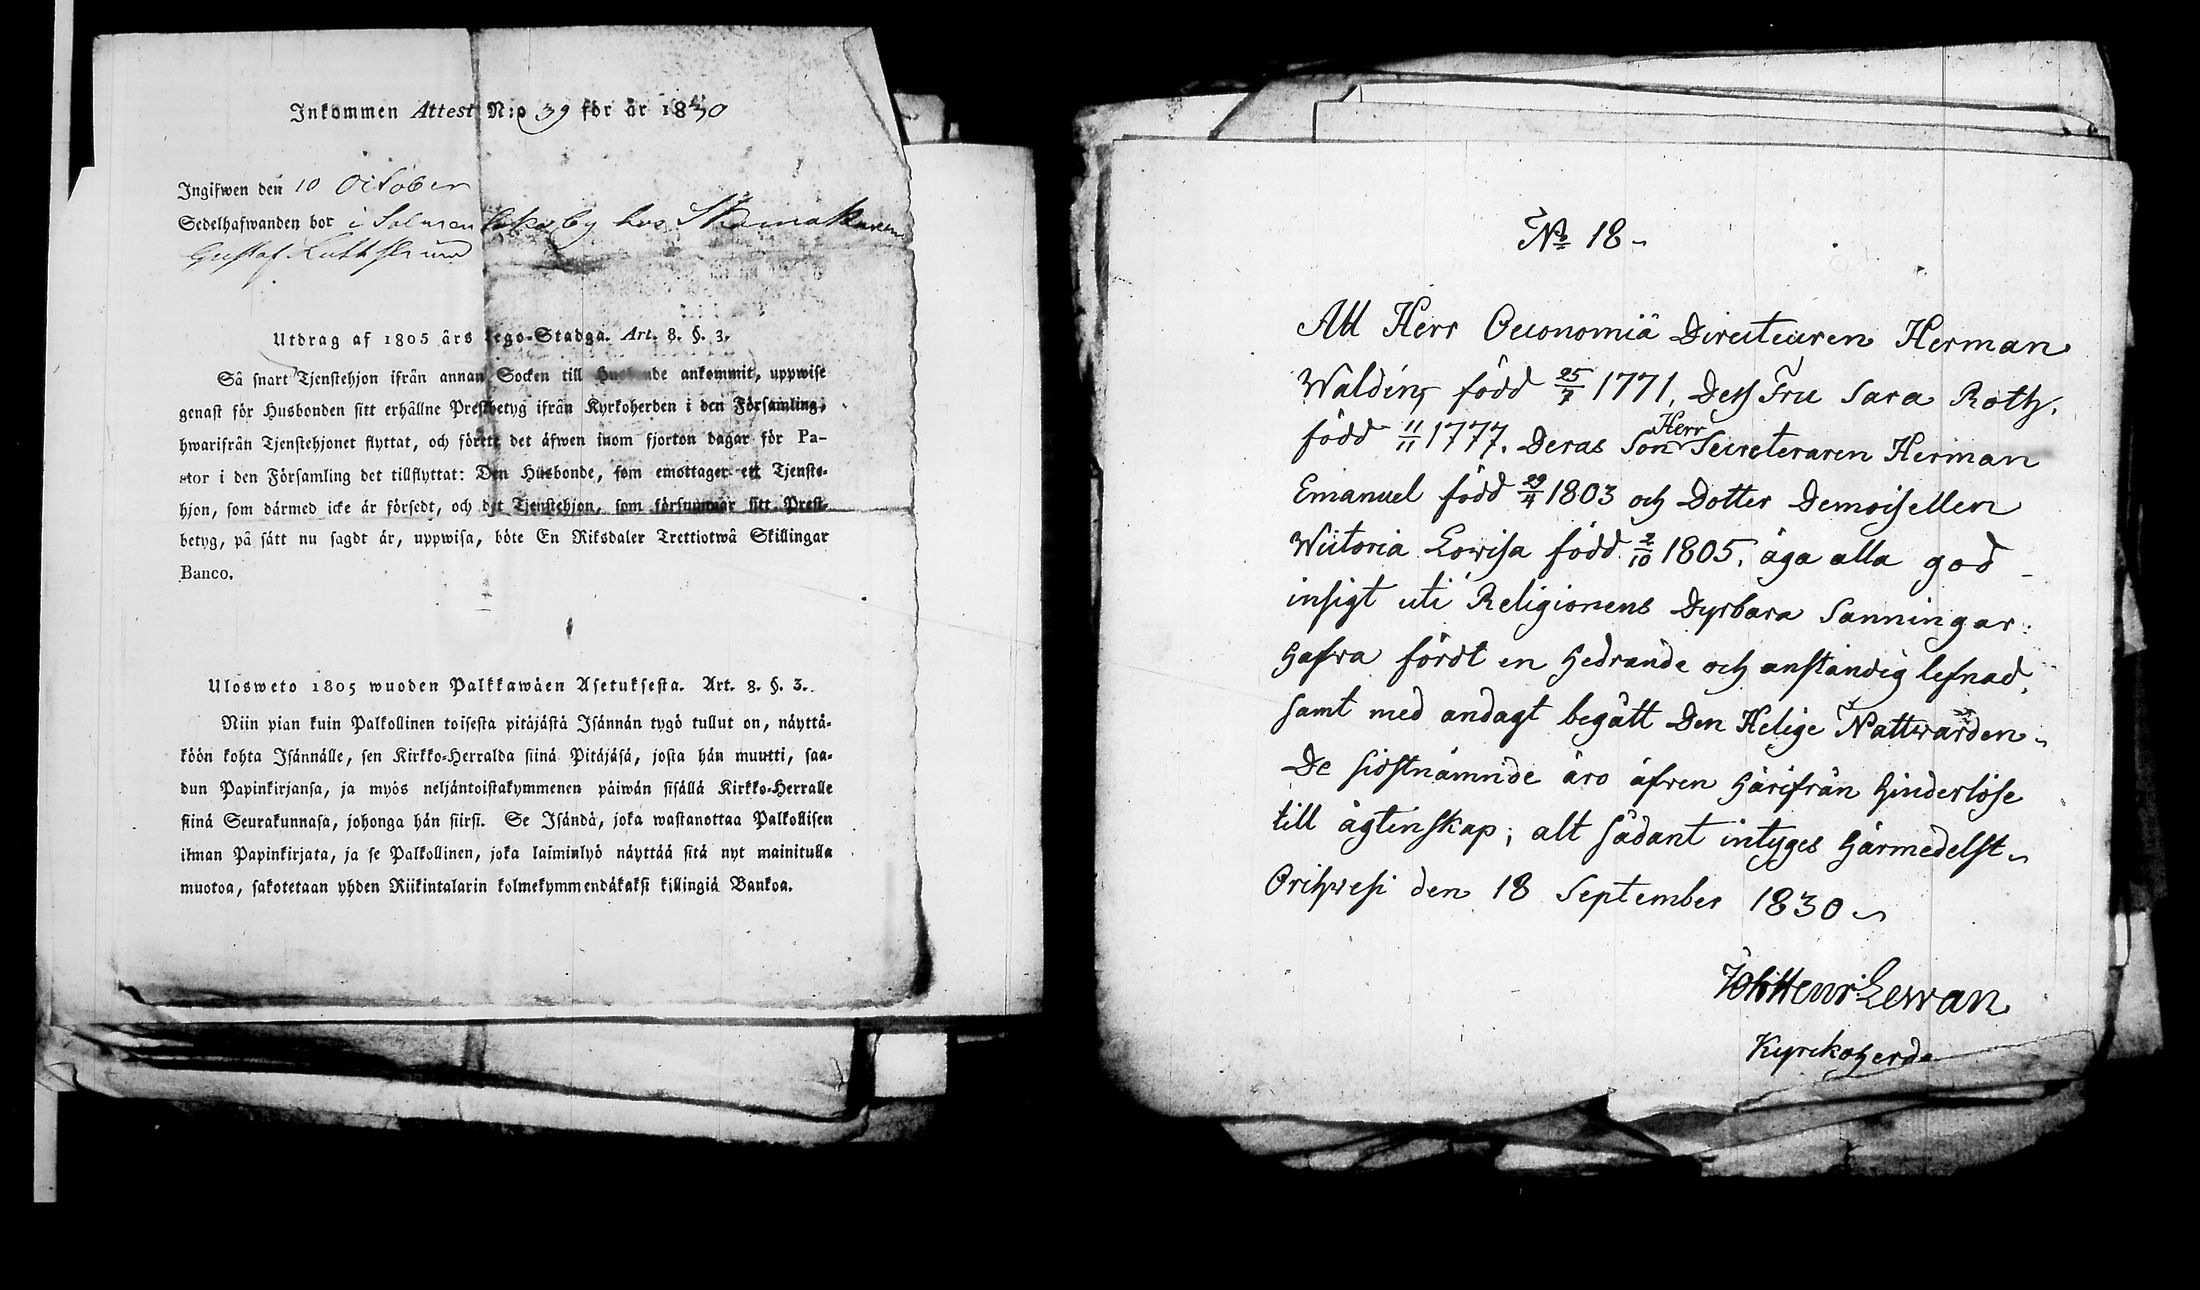 Inkommen Attest N:o 39 för år 1830
Ingifwen den 10 October
Sedelhafwanden bor i Salmen by hos Skomakaren
Gustaf
Utdrag af 1805 års Lego-Stadga. Art. 8. §. 3.
Så snart Tjenstehjon ifrån annan Socken till Husbonde ankommit, uppwise
genast för Husbonden sitt erhållne Prestbetyg ifrån Kyrkoherden i den Församling,
hwarifrån Tjenstehjonet flyttat, och förete det äfwen inom fjorton dagar för Pa-
stor i den Församling det tillflyttat: Den Husbonde, som emottager ett Tjenste-
hjon, som därmed icke är försedt, och det Tjenstehjon, som försummar sitt Prest-
betyg, på sätt nu sagdt är, uppwisa, böte En Riksdaler Trettiotwå Skillingar
Banco.
Ulosweto 1805 wuoden Palkkawäen Asetuksesta. Art. 8. §. 3.
Niin pian kuin Palkollinen toisesta pitäjästä Isännän tygö tullut on, näyttä-
köön kohta Isännälle, sen Kirkko-Herralda siinä Pitäjäsä, josta hän muutti, saa-
dun Papinkirjansa, ja myös neljäntoistakymmenen päiwän sisällä Kirkko-Herralle
siinä Seurakunnasa, johonga hän siirsi. Se Isändä, joka wastanottaa Palkollisen
ilman Papinkirjata, ja se Palkollinen, joka laiminlyö näyttää sitä nyt mainitulla
muotoa, sakotetaan yhden Riikintalarin kolmekymmendäkaksi killingiä Bankoa.
No 18
Att Herr Oeconomiä Directeuren Herman
Waldin, född 25/7 1771, Dess Fru Sara Roth,
född 11/11 1777. Deras Son Herr Secreteraren Herman
Emanuel född 29/4 1803 och Dotter Demoisellen
Wictoria Lowisa född 2/10 1805, äga alla god
insigt uti Religionens Dyrbara Sanningar:
hafwa fördt en hedrande och anständig lefnad,
samt med andagt begått Den Helige Nattwarden
De sidstnämnde äro äfwen härifrån hinderlöse
till ägtenskap; alt sådant intyges härmedelst
Orihwesi den 18 September 1830
Joh Henr Lewan
Kyrckoherde